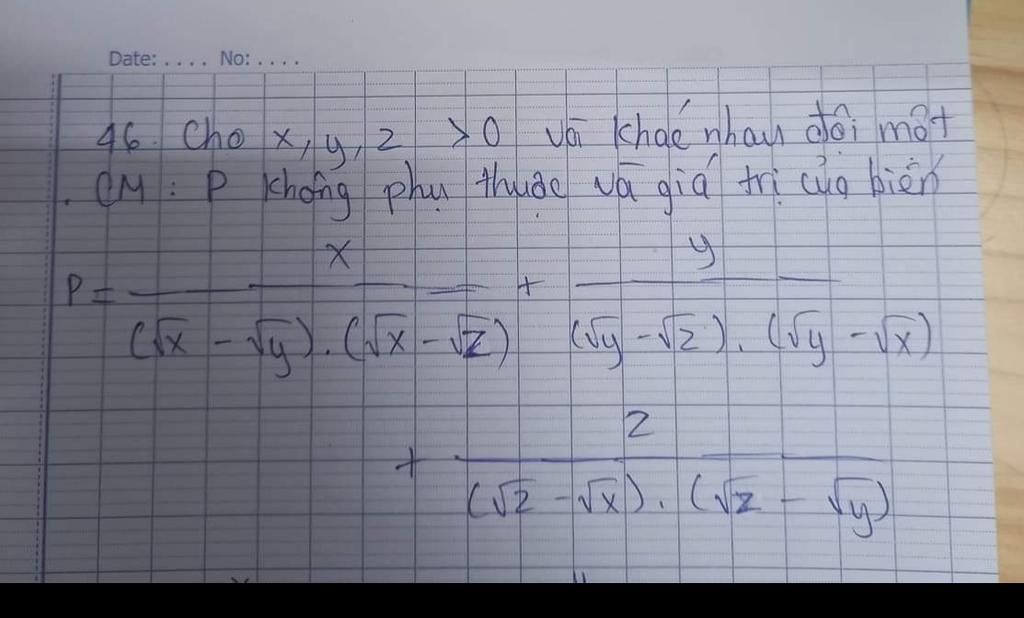 Date: .... No: ....
46. Cho x, y, z > 0 và khác nhau đôi một
. CM : P không phụ thuộc và giá trị của biến
P = x / (√x - √y).(√x - √z) + y / (√y - √z).(√y - √x)
+ z / (√z - √x).(√z - √y)